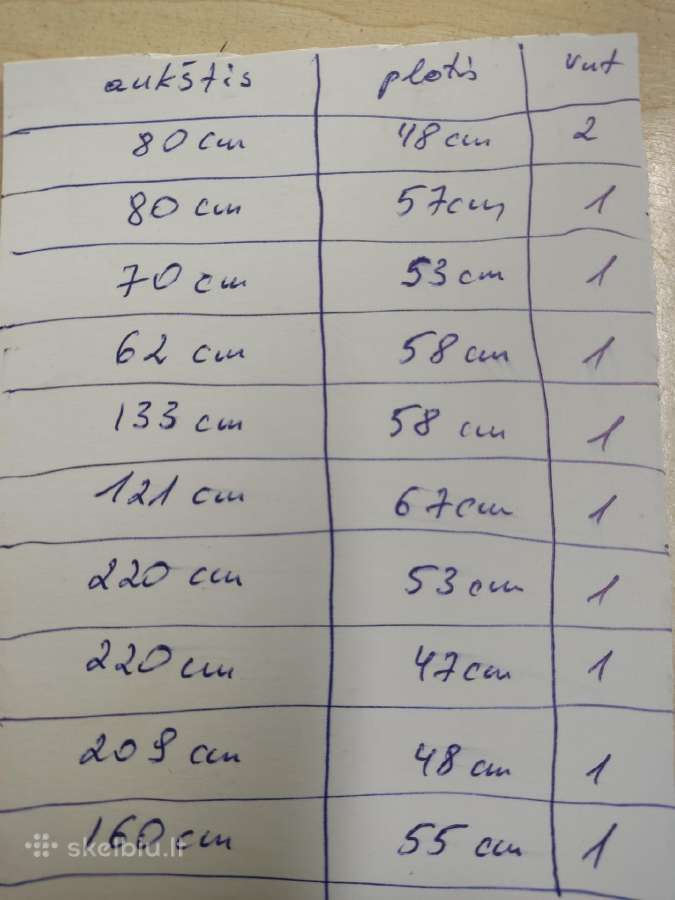 aukštis plotis vnt
80 cm 48 cm 2
80 cm 57 cm 1
70 cm 53 cm 1
62 cm 58 cm 1
133 cm 58 cm 1
121 cm 67 cm 1
220 cm 53 cm 1
220 cm 47 cm 1
209 cm 48 cm 1
160 cm 55 cm 1
skelbiu.lt